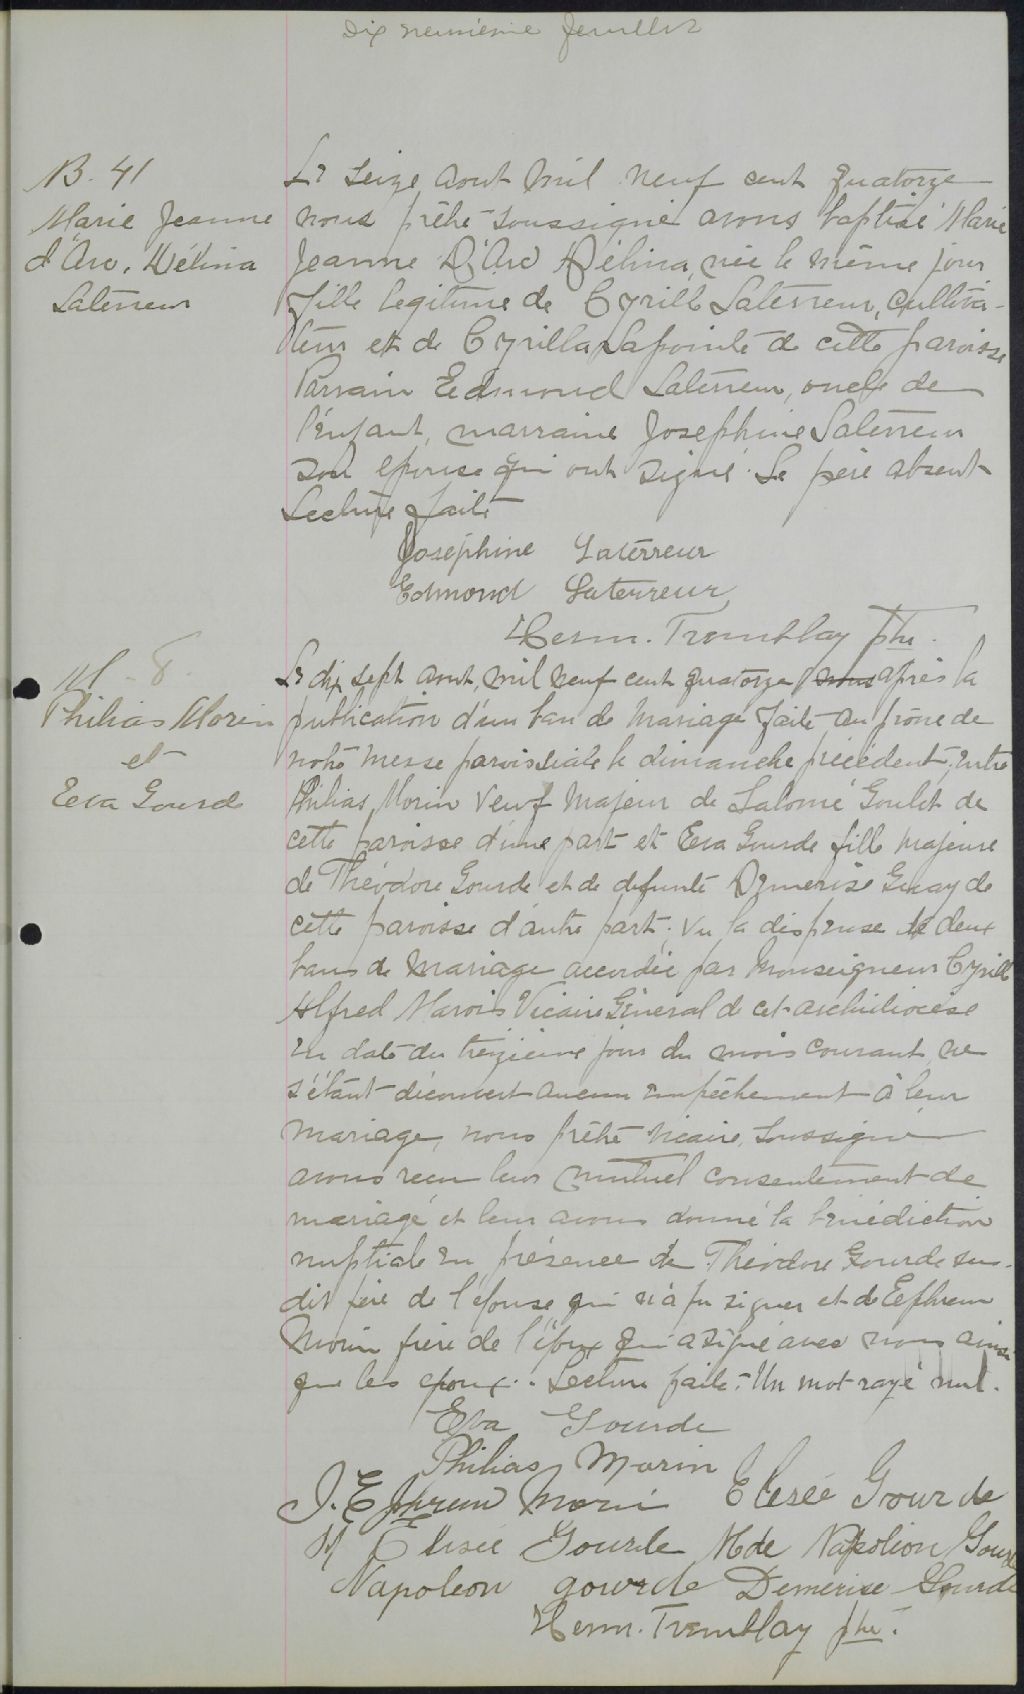 Dix neuvième feuillet
B. 41
Marie Jeanne
d'Arc, Délina
Laterreur
Le seize aout mil neuf cent quatorze
nous prêtre soussigné avons baptisé Marie
Jeanne D'Arc Délina, née le même jour
fille legitime de Cyrille Laterreur, cultiva-
teur et de Cyrilla Lapointe de cette paroisse
Parrain Edmond Laterreur, oncle de
l'enfant, marraine Josephine Laterreur
son epouse qui ont signé. Le père absent
Lecture faite
Joséphine Laterreur
Edmond Laterreur
Herm. Tremblay ptre.
M - 8.
Philias Morin
et
Eva Gourde
Le dix sept aout, mil neuf cent quatorze, nous après la
publication d'un ban de mariage faite au prône de
notre messe paroissiale le dimanche précédent, entre
Philias Morin veuf majeur de Salomé Goulet de
cette paroisse d'une part et Eva Gourde fille majeure
de Théodore Gourde et de defunte Démerise Guay de
cette paroisse d'autre part; vu la dispense de deux
bans de mariage accordée par Monseigneur Cyrille
Alfred Marois Vicaire Général de cet archidiocèse
en date du treizième jour du mois courant, ne
s'étant découvert aucun empêchement à leur
mariage, nous prêtre vicaire, soussigné
avons recu leur mutuel consentement de
mariage et leur avons donné la bénédiction
nuptiale en présence de Théodore Gourde sus-
dit père de l'épouse qui n'a pu signer et de Ephrem
Morin frère de l'époux qui a signé avec nous ainsi
que les époux. Lecture faite. Un mot rayé nul.
Eva Gourde
Philias Morin
J. Ephrem Morin Elesée Gourde
M Elisée Gourde Mde Napolion Gourde
Napoleon gourde Demerise Gourde
Herm. Tremblay ptre.